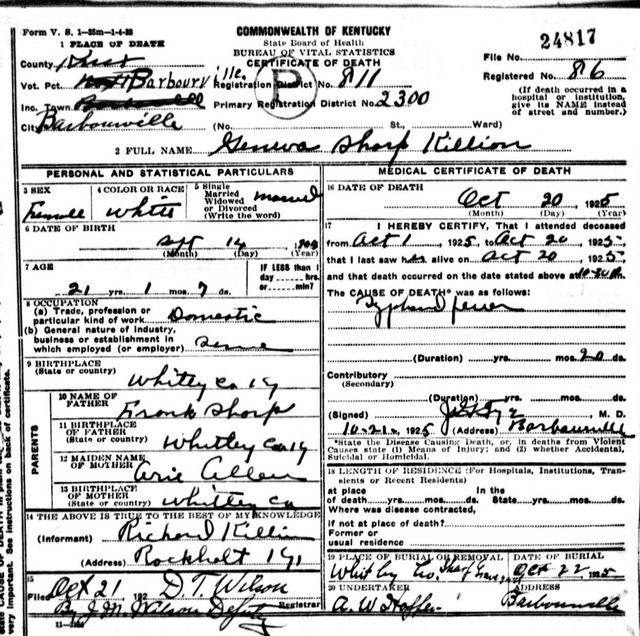 Form V. S. 1—35m—1-4-23
COMMONWEALTH OF KENTUCKY
State Board of Health
BUREAU OF VITAL STATISTICS
CERTIFICATE OF DEATH
24817
File No.
Registered No. 86
(If death occurred in a hospital or institution, give its NAME instead of street and number.)
1 PLACE OF DEATH
County Knox
Vot. Pct. Barbourville
Registration District No. 811
Inc. Town Barbourville
Primary Registration District No. 2300
City Barbourville (No. St., Ward)
2 FULL NAME Geneva Sharp Killion
PERSONAL AND STATISTICAL PARTICULARS
3 SEX
Female
4 COLOR OR RACE
White
5 Single
Married
Widowed
or Divorced
(Write the word)
Married
6 DATE OF BIRTH
Sept 14
(Month) (Day) (Year)
7 AGE
21 1 7
IF LESS than 1
day hrs.
or min?
8 OCCUPATION
(a) Trade, profession or
particular kind of work Domestic
(b) General nature of industry,
business or establishment in
which employed (or employer) Same
9 BIRTHPLACE
(State or country)
Whitley Co Ky
PARENTS
10 NAME OF
FATHER
Frank Sharp
11 BIRTHPLACE
OF FATHER
(State or country) Whitley Co Ky
12 MAIDEN NAME
OF MOTHER
Arie Allen
13 BIRTHPLACE
OF MOTHER
(State or country) Whitley Co
14 THE ABOVE IS TRUE TO THE BEST OF MY KNOWLEDGE
(Informant) Richard Killion
(Address) Rockholt Ky
15
Filed Oct 21 192 D. T. Wilson
By J. M. Wilson Deputy Registrar
MEDICAL CERTIFICATE OF DEATH
16 DATE OF DEATH
Oct 20 1925
(Month) (Day) (Year)
17 I HEREBY CERTIFY, That I attended deceased
from Oct 1, 1925 to Oct 20 1925
that I last saw alive on Oct 20 1925
and that death occurred on the date stated above at
The CAUSE OF DEATH* was as follows:
Typhoid fever
(Duration) yrs. mos. 20 ds.
Contributory
(Secondary)
(Duration) yrs. mos. ds.
(Signed) M. D.
10-21, 1925 (Address) Barbourville
*State the Disease Causing Death, or, in deaths from Violent
Causes state (1) Means of Injury; and (2) whether Accidental,
Suicidal or Homicidal.
18 LENGTH OF RESIDENCE (For Hospitals, Institutions, Transients or Recent Residents)
at place In the
of death yrs. mos. ds. State yrs. mos. ds.
Where was disease contracted,
if not at place of death?
Former or
usual residence
19 PLACE OF BURIAL OR REMOVAL
Whitley Co. Sharp Grave yard
DATE OF BURIAL
Oct 22 1925
20 UNDERTAKER
A. W. Hopper
ADDRESS
Barbourville